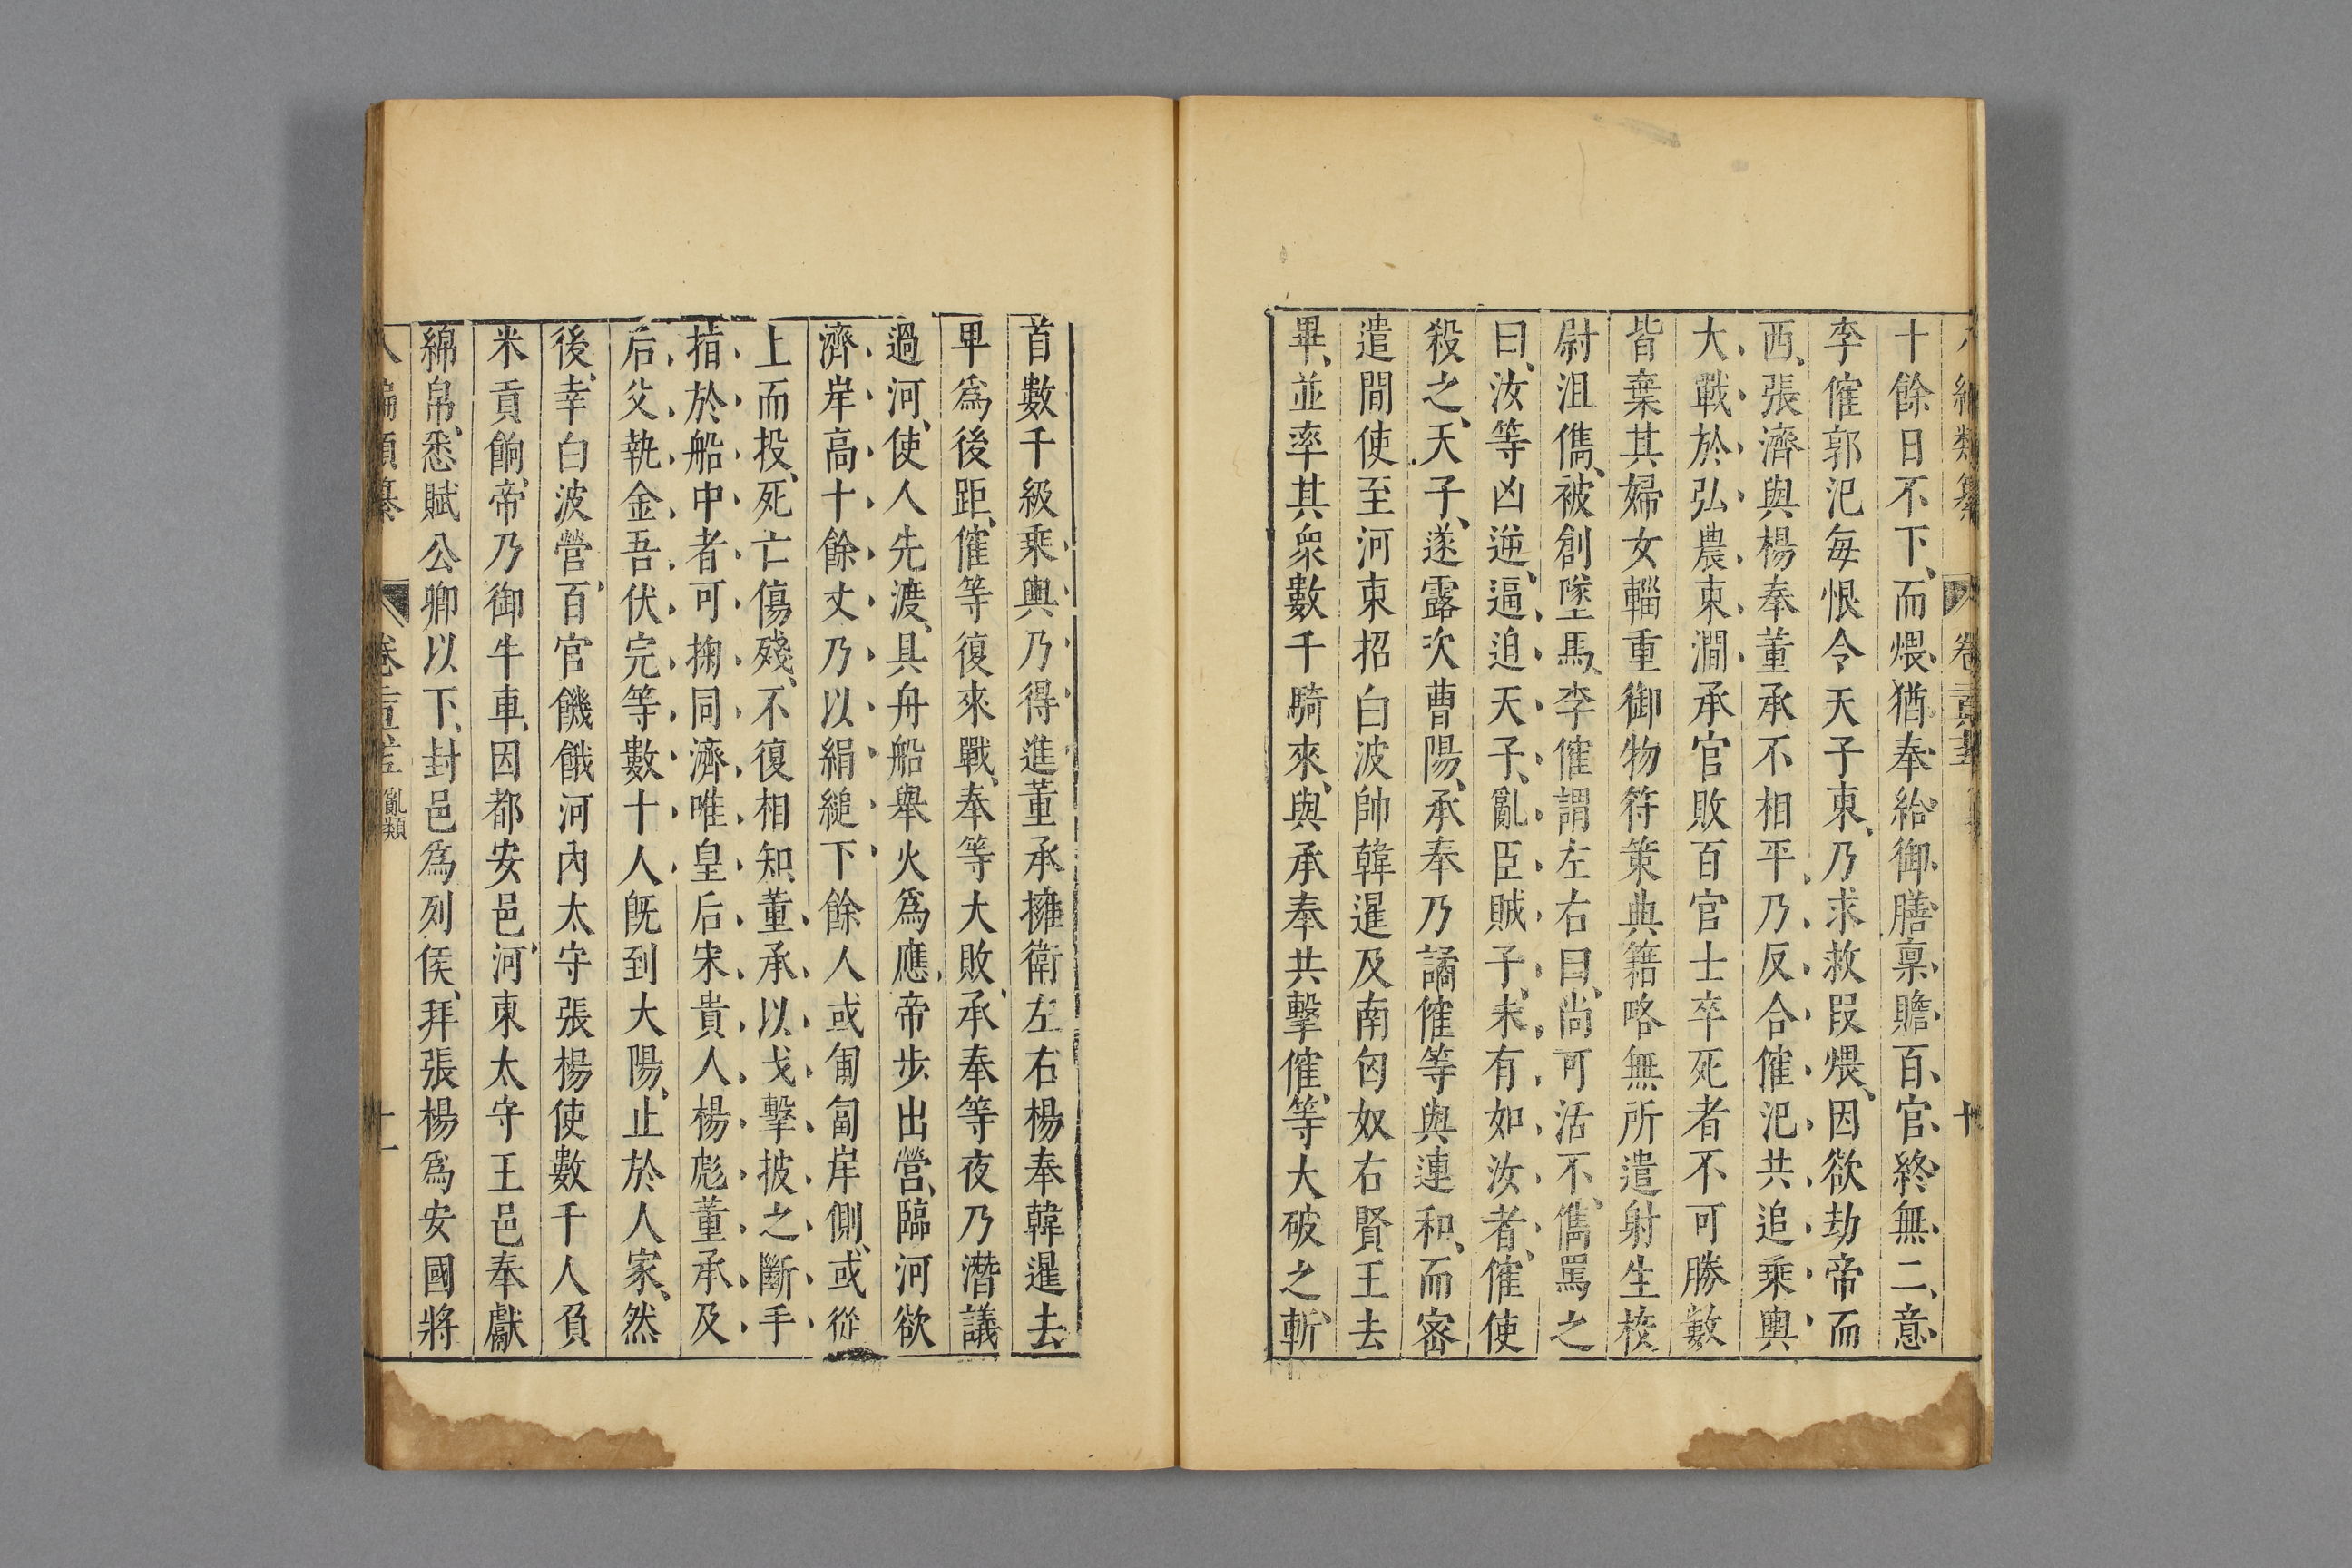 十餘日不下、而煨猶奉給御膳稟贍百官終無二意
李傕郭汜每恨令天子東、乃求救叚煨、因欲劫帝而
西、張濟與楊奉董承不相平乃反合傕汜共追乗輿
大戰於弘農東澗承官敗百官士卒死者不可勝數
皆棄其婦女輜重御物符策典籍略無所遣射生校
尉沮儁、被創墜馬、李傕謂左右曰、尚可活不、儁罵之
曰、汝等凶逆、逼迫天子、亂臣賊子、未有如汝者、傕使
殺之、天子、遂露次曹陽、承奉乃譎傕等與連和、而密
遣間使至河東招白波帥韓暹及南匈奴右賢王去
畢、並率其衆數千騎來、與承奉共擊傕、等大破之、斬
首數千級乗輿乃得進董承擁衛左右楊奉韓暹去
卑爲後距、傕等復來戰、奉等大敗、承奉等夜乃潛議
過河、使人先渡、具舟船舉火爲應、帝步出營、臨河欲
濟岸高十餘丈乃以絹縋下餘人或匍匐岸側、或從
上而投、死亡傷殘、不復相知、董承以戈擊披之斷手
指於船中者可掬同濟唯皇后宋貴人楊彪董承及
后父執金吾伏完等數十人旣到大陽、止於人家、然
後、幸白波營、百官饑餓河內太守張楊使數千人負
米貢餉、帝乃御牛車、因都安邑、河東太守王邑奉獻
綿帛、悉賦公卿以下、封邑爲列侯、拜張楊爲安國將
亂類
十一